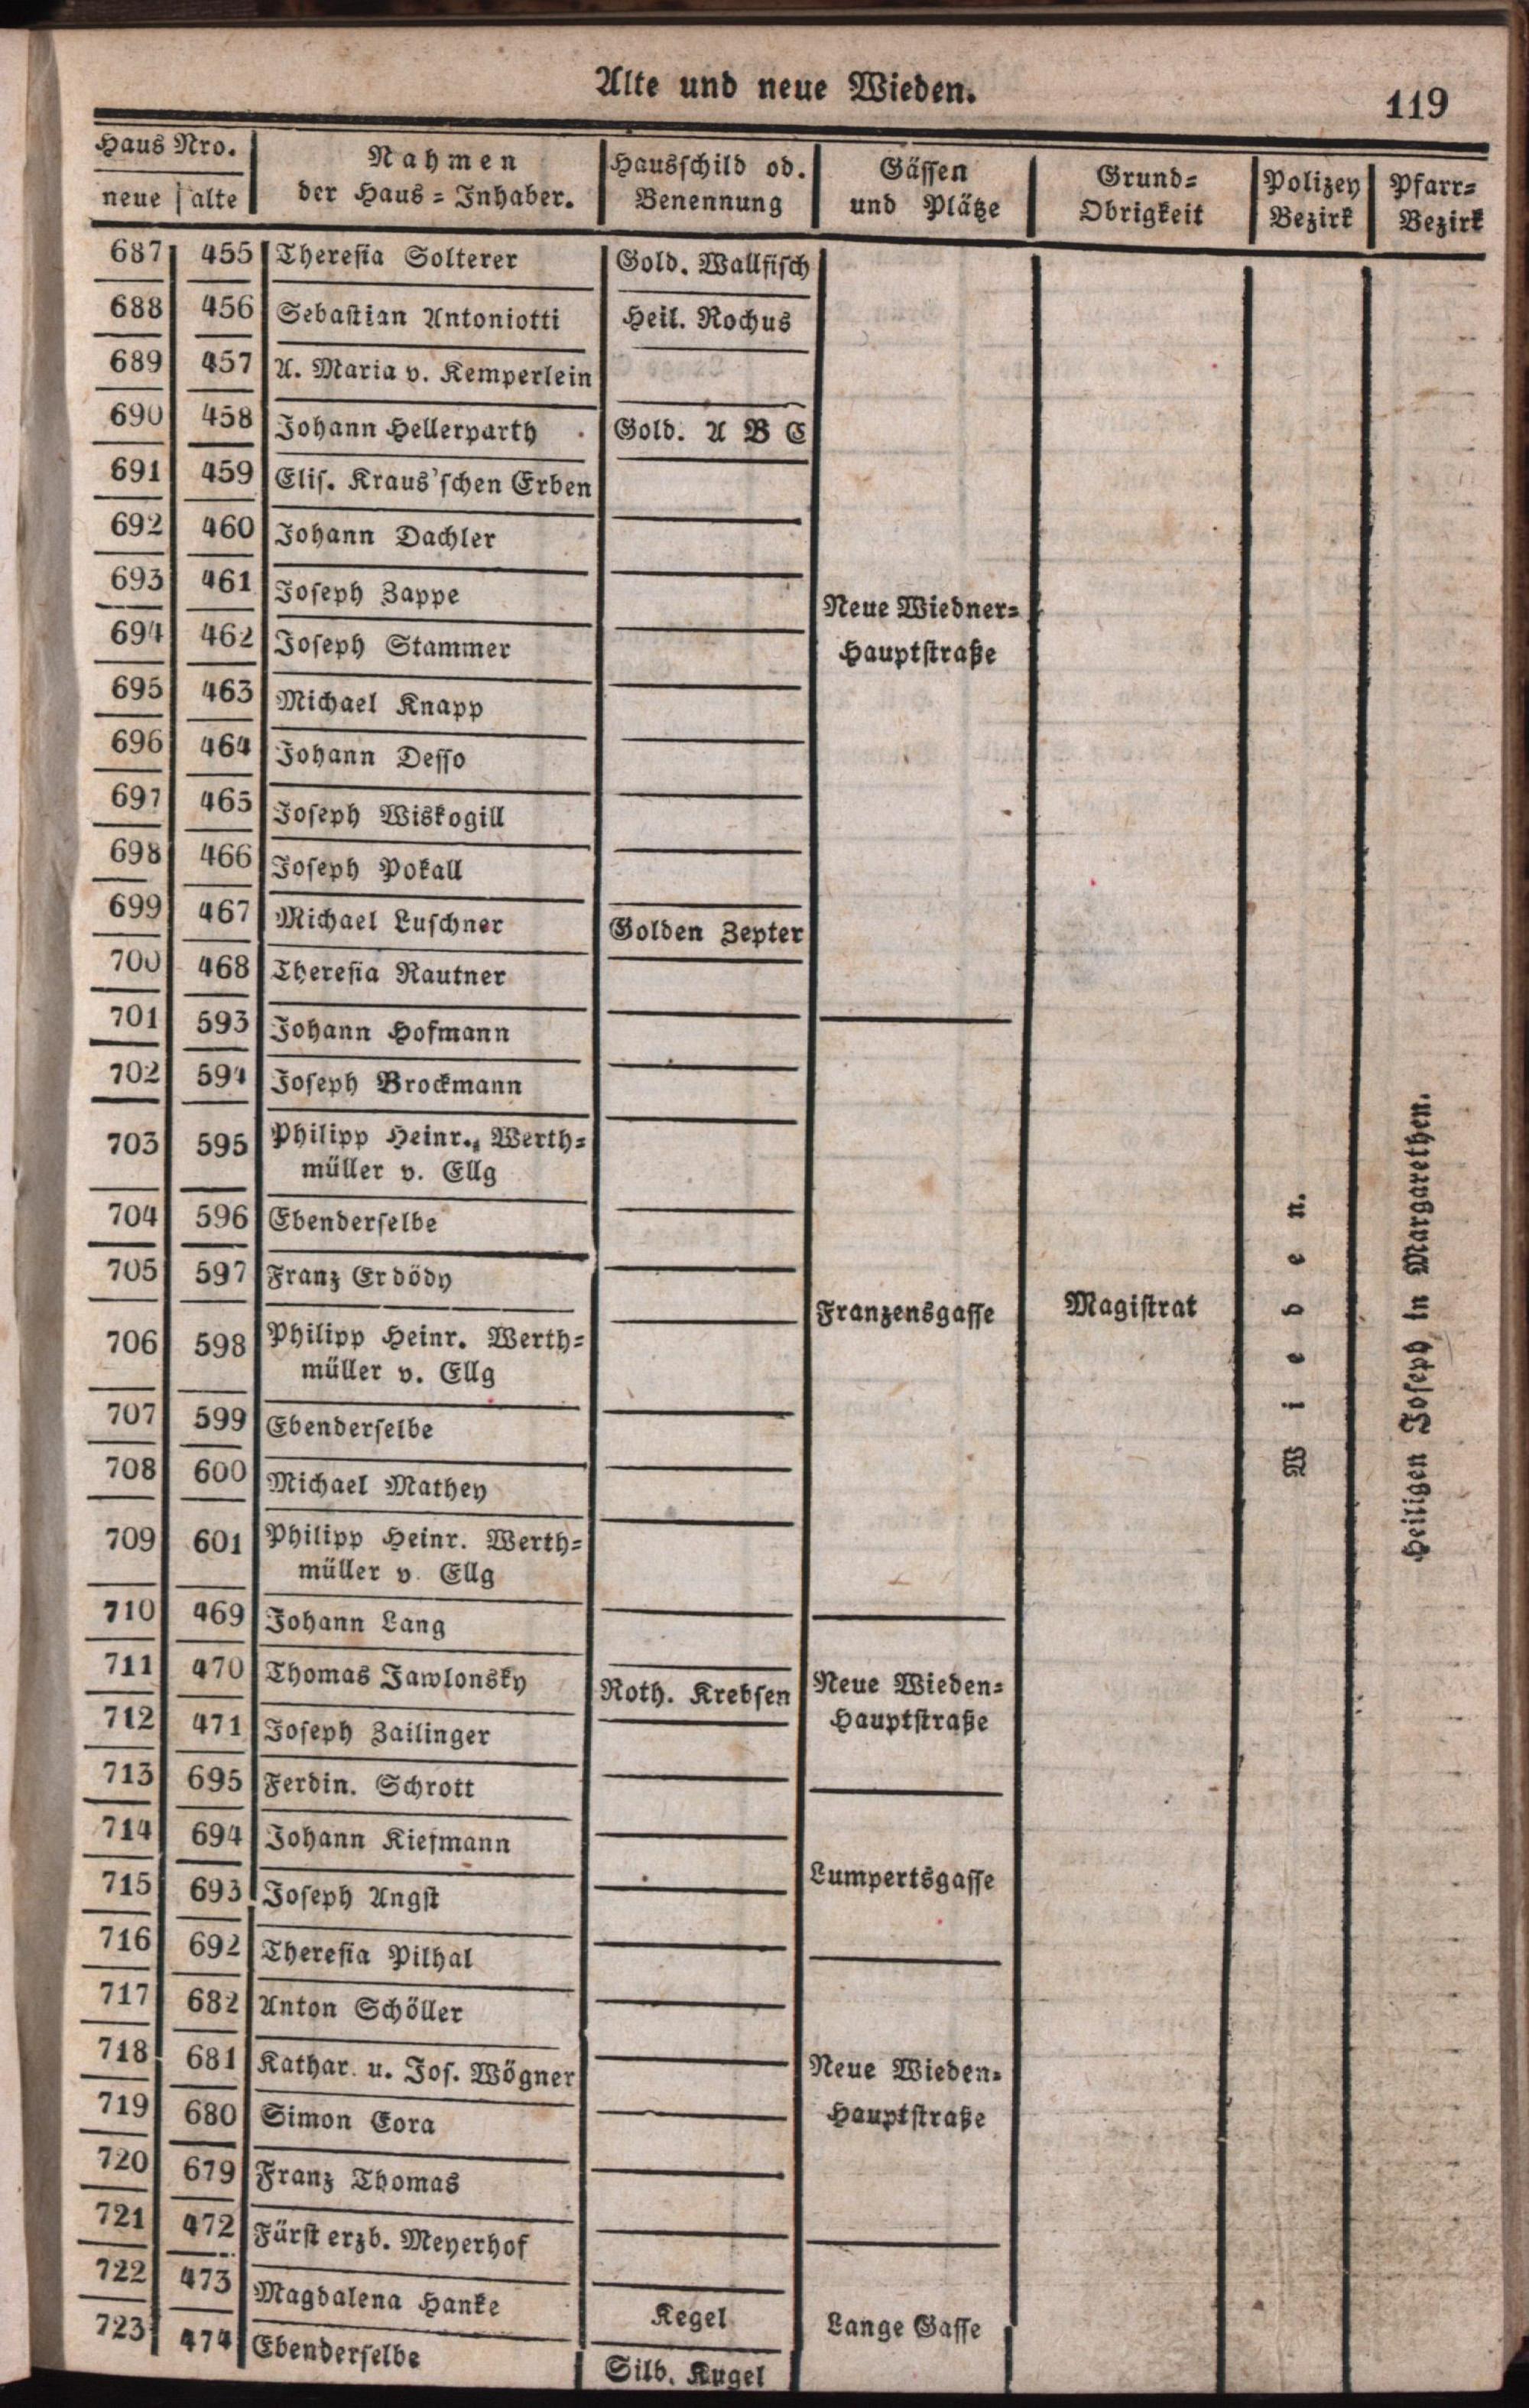 Alte und neue Wieden.
119
Haus Nro.
neue alte
Nahmen
der Haus=Inhaber.
Hausschild od.
Benennung
Gässen
und Plätze
Grund=
Obrigkeit
Polizey
Bezirk
Pfarr=
Bezirk
687 455 Theresia Solterer Gold. Wallfisch
688 456 Sebastian Antoniotti Heil. Rochus
689 457 A. Maria v. Kemperlein
690 458 Johann Hellerparth Gold. A B C
691 459 Elis. Kraus'schen Erben
692 460 Johann Dachler
693 461 Joseph Zappe
Neue Wiedner=
694 462 Joseph Stammer
Hauptstraße
695 463 Michael Knapp
696 464 Johann Desso
697 465 Joseph Wiskogill
698 466 Joseph Pokall
699 467 Michael Luschner Golden Zepter
700 468 Theresia Rautner
701 593 Johann Hofmann
702 594 Joseph Brockmann
703 595 Philipp Heinr. Werth=
müller v. Ellg
704 596 Ebenderselbe
705 597 Franz Erdödy
Franzensgasse
Magistrat
Wieden.
Heiligen Joseph in Margarethen.
706 598 Philipp Heinr. Werth=
müller v. Ellg
707 599 Ebenderselbe
708 600 Michael Mathey
709 601 Philipp Heinr. Werth=
müller v. Ellg
710 469 Johann Lang
711 470 Thomas Jawlonsky Roth. Krebsen Neue Wieden=
Hauptstraße
712 471 Joseph Zailinger
713 695 Ferdin. Schrott
714 694 Johann Kiefmann
Lumpertsgasse
715 693 Joseph Angst
716 692 Theresia Pilhal
717 682 Anton Schöller
718 681 Kathar. u. Jos. Wögner Neue Wieden=
719 680 Simon Cora Hauptstraße
720 679 Franz Thomas
721 472 Fürst erzb. Meyerhof
722 473 Magdalena Hanke Kegel Lange Gasse
723 474 Ebenderselbe Silb. Kugel